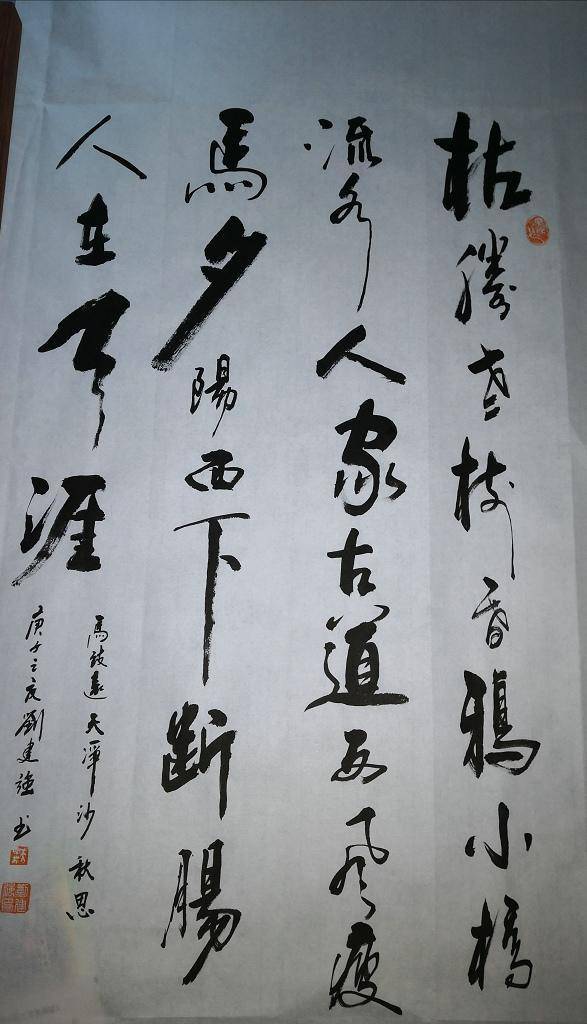 枯藤老树昏鸦小橋
流水人家古道西風瘦
馬夕陽西下断腸
人在天涯
馬致遠天淨沙秋思
庚子之夏劉建強书